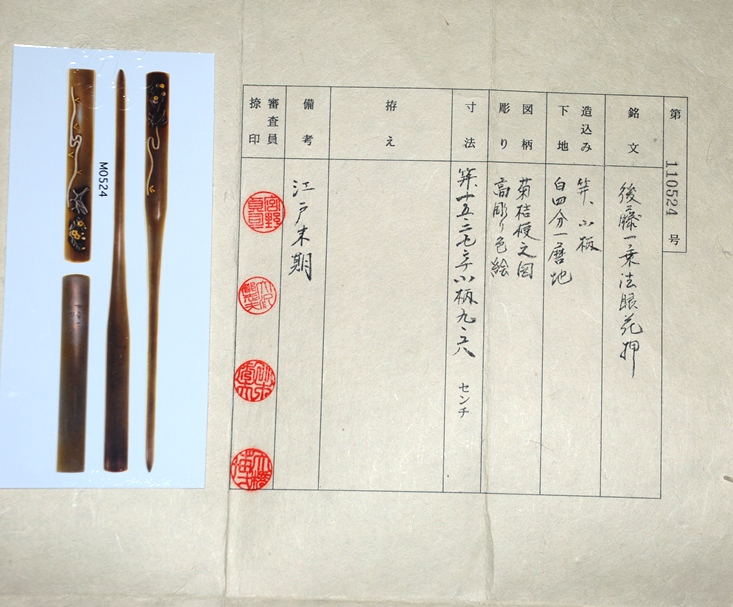 第 110524 号
銘文
後藤一乗法眼花押
造込み
下地
笄、小柄
白四分一磨地
図柄
彫り
菊桔梗之図
高彫り色絵
寸法
笄、十五・二七 小柄九・ センチ
拵え
備考
江戸末期
審査員
捺印
M0524